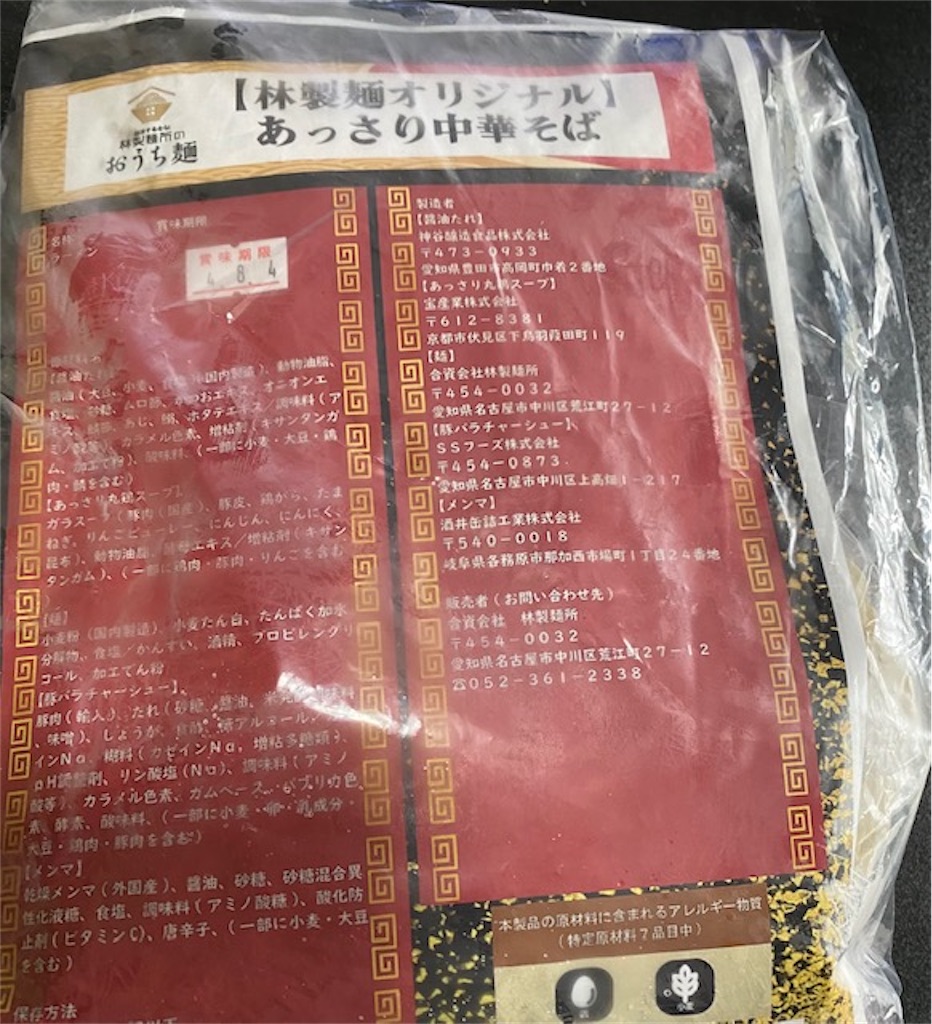 林製麺所の
おうち麺
【林製麺オリジナル】
あっさり中華そば
名称
ラーメン
賞味期限
賞味期限
4 8.4
【醤油たれ】
醤油(大豆、小麦、食塩 外国内製造)、動物油脂、
食塩、砂糖、ムロ節、かつおエキス、オニオンエ
キス、 あじ、鯖、ホタテエキス/調味料(ア
ミノ酸等)、カラメル色素、増粘剤(キサンタンガ
ム、加工で粉)、酸味料、(一部に小麦・大豆・鶏
肉・鯖を含む)
【あっさり丸鶏スープ】
ガラスープ(豚肉(国産)、豚皮、鶏がら、たま
ねぎ、りんごピューレー、にんじん、にんにく、
昆布)、動物油脂、酵母エキス/増粘剤(キサン
タンガム)、(一部に鶏肉・豚肉・りんごを含む
【麺】
小麦粉(国内製造)、小麦たん白、たんぱく加水
分解物、食塩/かんすい、酒精、プロピレングリ
コール、加工でん粉
【豚バラチャーシュー】、
豚肉(輸入)、たれ(砂糖、醤油、 調味料
、味噌)、しょうが、食酢、 アルコール
インNa、糊料(カゼインNa、増粘多糖類)、
pH調整剤、リン酸塩(Na)、調味料(アミノ
酸等)、カラメル色素、ガムベース、 色
素、酵素、酸味料、(一部に小麦・卵・乳成分・
大豆・鶏肉・豚肉を含む)
【メンマ】
乾燥メンマ(外国産)、醤油、砂糖、砂糖混合異
性化液糖、食塩、調味料(アミノ酸糖)、酸化防
止剤(ビタミンC)、唐辛子、(一部に小麦・大豆
を含む)
保存方法
製造者
【醤油たれ】
神谷醸造食品株式会社
〒473-0933
愛知県豊田市高岡町巾着2番地
【あっさり丸鶏スープ】
宝産業株式会社
〒612-8381
京都市伏見区下鳥羽葭田町119
【麺】
合資会社林製麺所
〒454-0032
愛知県名古屋市中川区荒江町27-12
【豚バラチャーシュー】
SSフーズ株式会社
〒454-0873
愛知県名古屋市中川区上高畑1-217
【メンマ】
酒井缶詰工業株式会社
〒540-0018
岐阜県各務原市那加西市場町1丁目24番地
販売者(お問い合わせ先)
合資会社 林製麺所
〒454-0032
愛知県名古屋市中川区荒江町27-12
☎052-361-2338
本製品の原材料に含まれるアレルギー物質
(特定原材料7品目中)
小麦